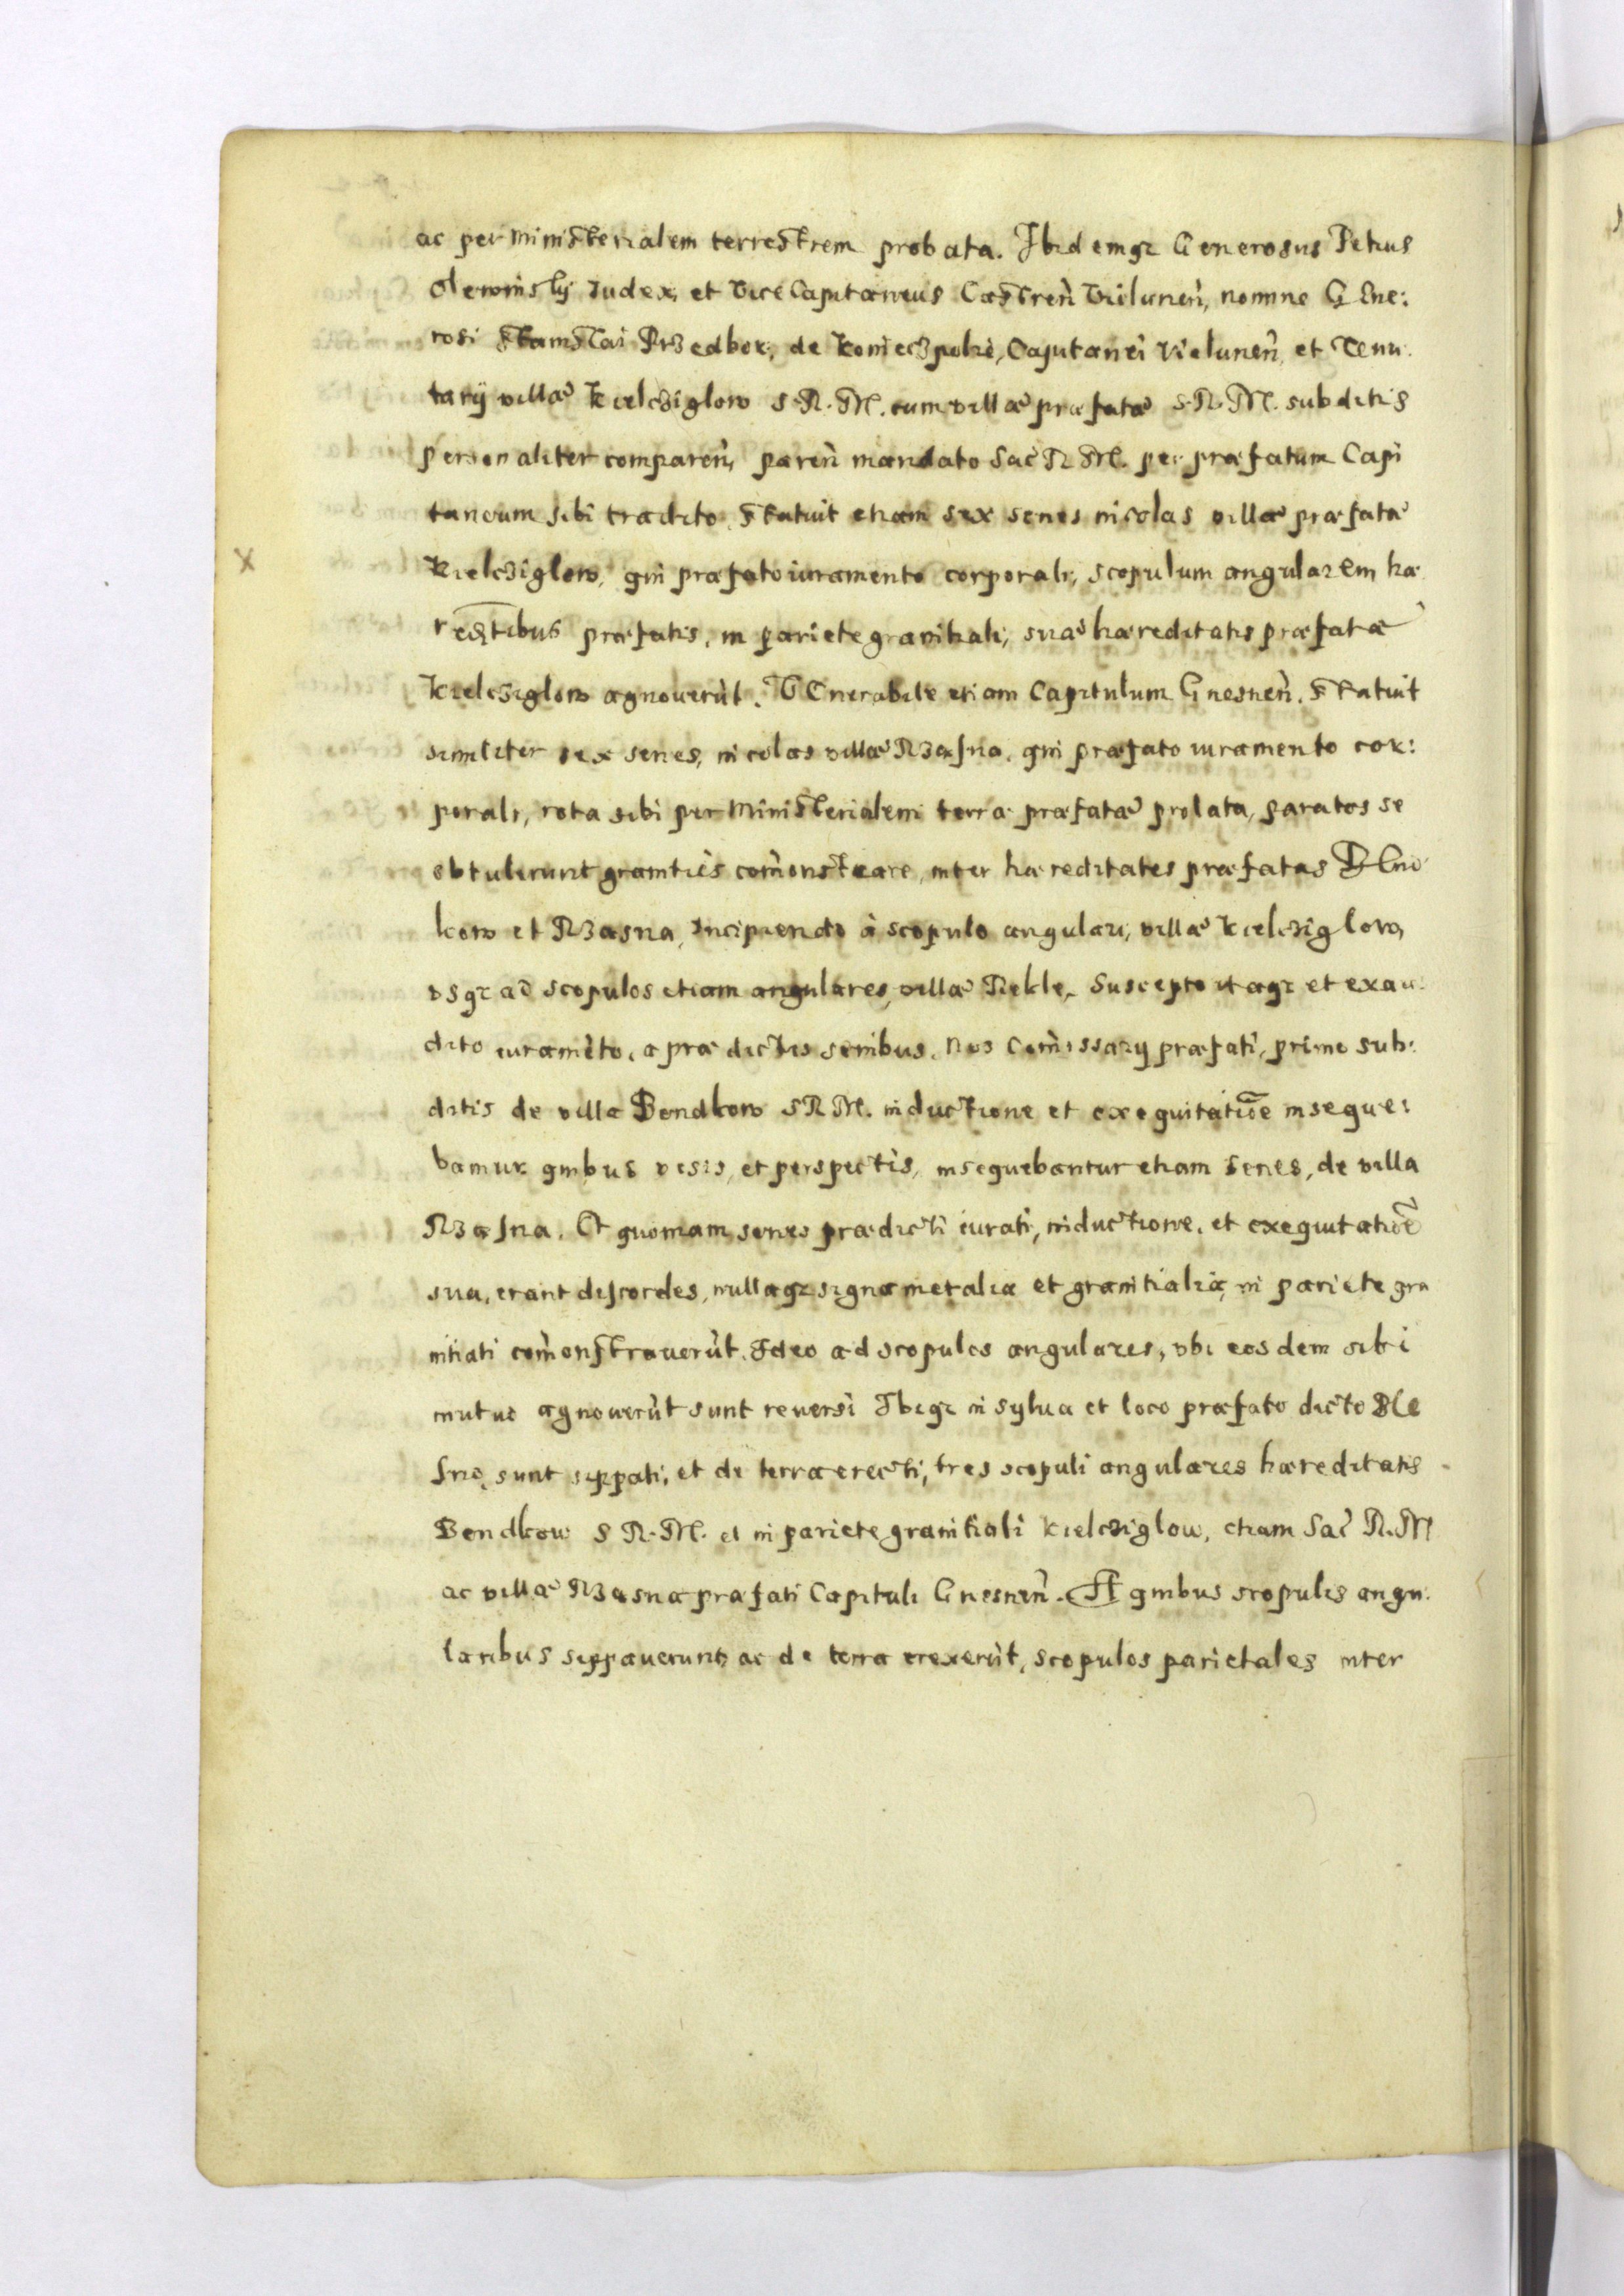 ac per Ministerialem terrestrem probata. Ibidemqꝫ Generosus Petrus
Olewinsky Iudex, et Vice Capitaneus Castreñ Vieluneñ, nomine Gene:
rosi Stanislai Przedbor, de Koniecpolie, Capitanei Vieluneñ, et Tenu:
tarÿ villæ Kielcziglow S. R. M. cum villæ præfatæ S. R. M. subditis
personaliter compareñ, pareñ mandato Sac̃ R M. per præfatum Capi
taneum sibi tradito. Statuit etiam sex senes incolas villæ præfatæ
X Kielcziglow, qui præfato iuramento corporali, scopulum angularem hæ
reditibus præfatis, in pariete granitiali, suæ hæreditatis præfatæ
Kielcziglow agnouerũt. Venerabile etiam Capitulum Gnesneñ. Statuit
similiter sex senes, incolas villæ Rzasna. qui præfato iuramento cor:
porali, rota sibi per Ministerialem terræ præfatæ prolata, paratos se
obtulerunt granitiés com̃onstrare, inter hæreditates præfatas Bend
kow et Rzasna, Incipiendo à scopulo angulari, villæ Kielcziglow,
vsqꝫ ad scopulos etiam angulares, villæ Rekle. Suscepto itaqꝫ et exau:
dito iuramẽto, a prædictis senibus. Nos Com̃issarÿ præfati, primo sub:
ditis de villa Bendkow S R M. inductione et exequitatiõe inseque:
bamur. quibus visis, et perspectis, insequebantur etiam senes, de villa
Rzasna. Et quoniam senes prædicti iurati, inductione, et exequitatiõe
sua, erant discordes, nullaqꝫ signa metalia et granitialia, in pariete gra
nitiati com̃onstrauerũt. Ideo ad scopulos angulares, vbi eosdem sibi
mutuo agnouerũt sunt reuersi Ibiqꝫ in sylua et loco præfato dicto Ble
sno, sunt sippati, et de terra erecti, tres scopuli angulares hæreditatis
Bendkow S R. M. et in pariete granitiali Kielcziglow, etiam Sac̃ R. M
ac villæ Rzasna præfati Capituli Gnesneñ. A quibus scopulis angu:
laribus sippauerunt, ac de terra erexerũt, scopulos parietales inter